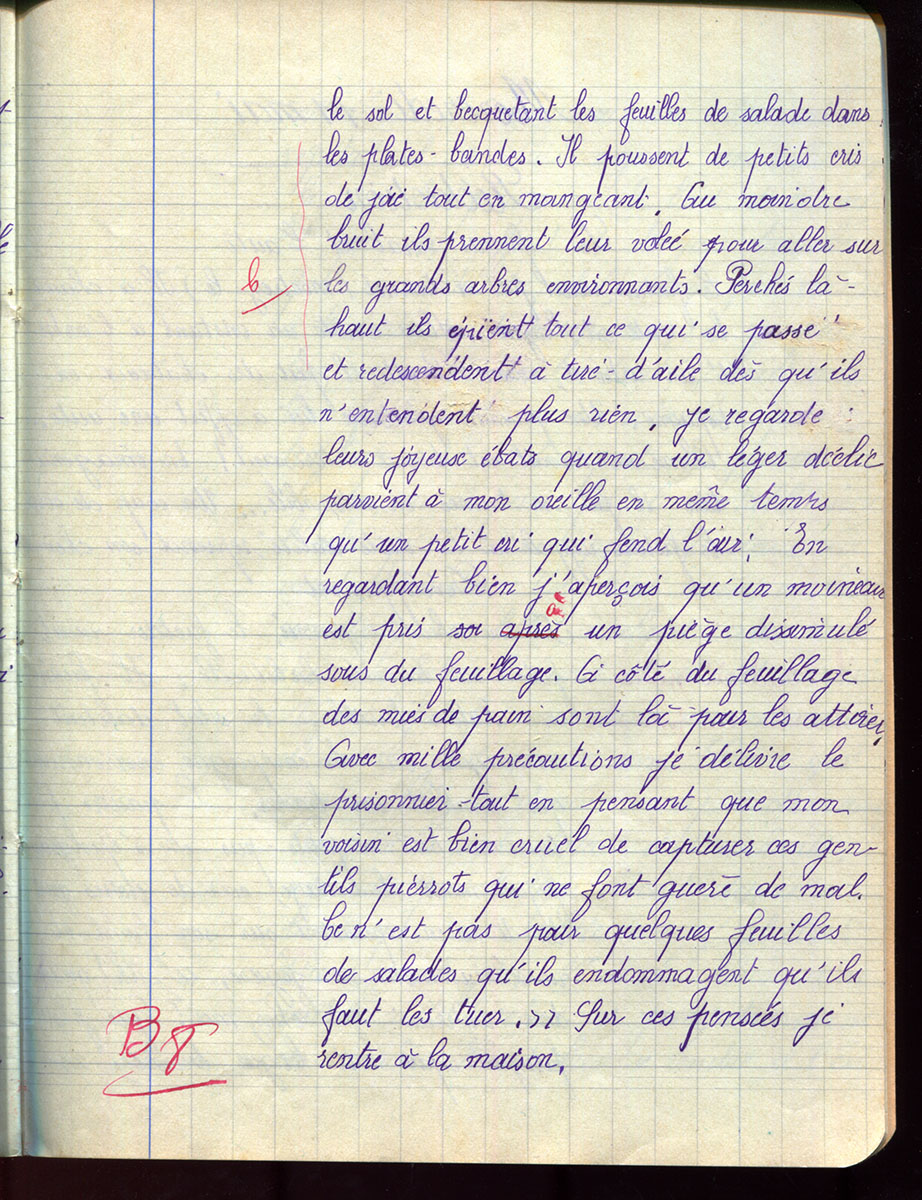 le sol et becquetant les feuilles de salade dans
les plates-bandes. Il poussent de petits cris
de joie tout en mangeant. Au moindre
bruit ils prennent leur volée pour aller sur
b les grands arbres environnants. Perchés là-
haut ils épient tout ce qui se passe
et redescendent à tire-d'aile dès qu'ils
n'entendent plus rien. je regarde
leurs joyeuse ébats quand un léger déclic
parvient à mon oreille en même temps
qu'un petit cri qui fend l'air. En
regardant bien j'aperçois qu'un moineau
est pris après un piège dissimulé
sous du feuillage. A côté du feuillage
des mies de pain sont là pour les attirer.
Avec mille précautions je délivre le
prisonnier tout en pensant que mon
voisin est bien cruel de capturer ces gen-
tils pierrots qui ne font guère de mal.
Ce n'est pas pour quelques feuilles
de salades qu'ils endommagent qu'ils
faut les tuer. >> Sur ces pensées je
rentre à la maison.
B 8